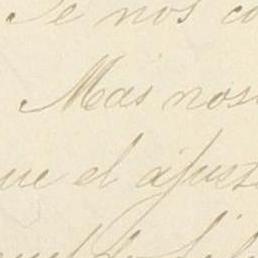 Se nos co
Mas nos
que el ajust